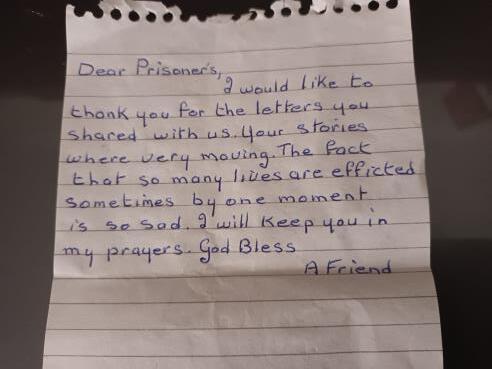 Dear Prisoner's,
I would like to
thank you for the letters you
shared with us. Your stories
where very moving. The fact
that so many lives are efficted
sometimes by one moment
is so sad. I will keep you in
my prayers. God Bless
A Friend